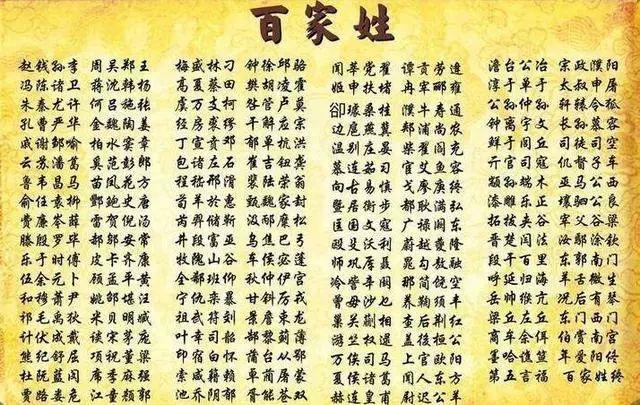 百家姓
赵钱孙李 周吴郑王 梅盛林刁 钟徐邱骆 闻莘党翟 谭贡劳逄 澹台公冶 宗政濮阳
冯陈褚卫 蒋沈韩杨 高夏蔡田 樊胡凌霍 姬申扶堵 冉宰郦雍 淳于单于 太叔申屠
朱秦尤许 何吕施张 虞万支柯 昝管卢莫 郤璩桑桂 濮牛寿通 公孙仲孙 轩辕令狐
孔曹严华 金魏陶姜 经房裘缪 干解应宗 边扈燕冀 郏浦尚农 钟离宇文 长孙慕容
戚谢邹喻 柏水窦章 丁宣贲邓 郁单杭洪 温别庄晏 柴瞿阎充 鲜于闾丘 司徒司空
云苏潘葛 奚范彭郎 包诸左石 崔吉钮龚 慕连茹习 宦艾鱼容 亓官司寇 仉督子车
鲁韦昌马 苗凤花方 程嵇邢滑 裴陆荣翁 向古易慎 戈廖庾终 颛孙端木 巫马公西
俞任袁柳 酆鲍史唐 荀羊於惠 甄麴家封 暨居衡步 都耿满弘 漆雕乐正 壤驷公良
费廉岑薛 雷贺倪汤 芮羿储靳 汲邴糜松 匡国文寇 广禄阙东 拓跋夹谷 宰父谷梁
滕殷罗毕 郝邬安常 井段富巫 乌焦巴弓 殴殳沃利 蔚越夔隆 晋楚闫法 汝鄢涂钦
乐于时傅 皮卞齐康 牧隗山谷 车侯宓蓬 师巩厍聂 晁勾敖融 段干百里 东郭南门
伍余元卜 顾孟平黄 全郗班仰 秋仲伊宫 冷訾辛阚 那简饶空 呼延归海 羊舌微生
和穆萧尹 姚邵湛汪 宁仇栾暴 甘钭厉戎 曾毋沙乜 养鞠须丰 岳帅缑亢 况后有琴
祁毛禹狄 米贝明臧 祖武符刘 景詹束龙 巢关蒯相 查后荆红 梁丘左丘 东门西门
计伏成戴 谈宋茅庞 叶幸司韶 郜黎蓟薄 游竺权逯 盖益桓公 商牟佘佴 伯赏南宫
熊纪舒屈 项祝董梁 印宿白怀 蒲邰从鄂 万俟司马 上官欧阳 墨哈谯笪 年爱阳佟
杜阮蓝闵 席季麻强 索咸籍赖 卓蔺屠蒙 夏侯诸葛 闻人东方 第五言福 百家姓终
贾路娄危 江童颜郭 池乔阴郁 胥能苍双 赫连皇甫 尉迟公羊